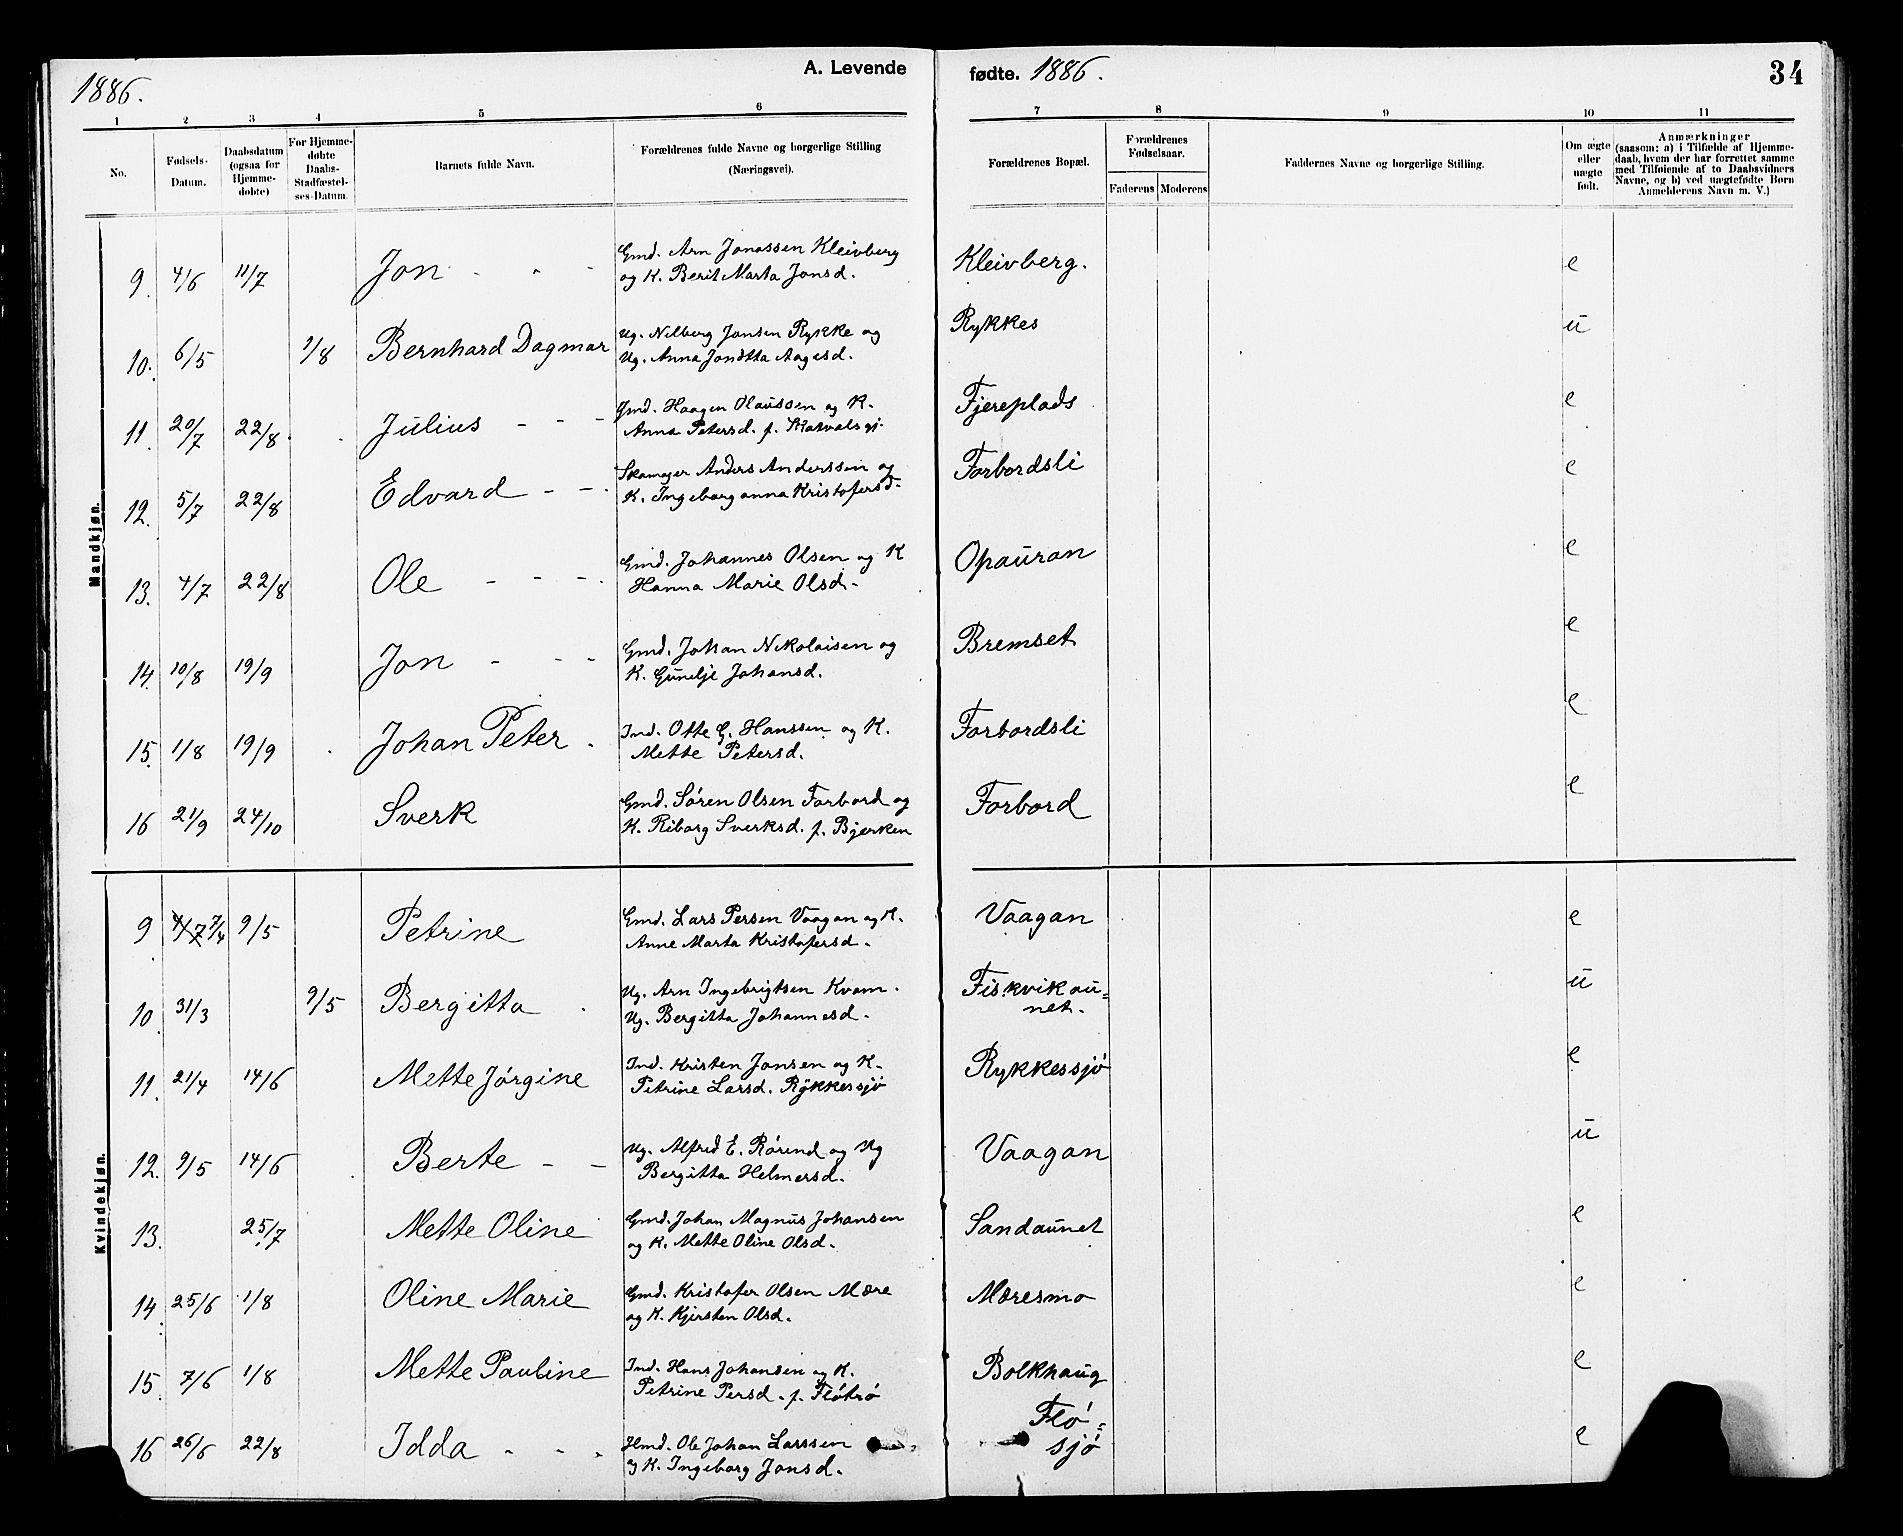 1886.
A. Levende
fødte. 1886.
34
1 2 3 4 5 6 7 8 9 10 11
No.
Fødsels-
Datum.
Daabsdatum
(ogsaa for
Hjemme-
døbte)
For Hjemme-
døbte
Daabs-
Stadfæstel-
ses-Datum.
Barnets fulde Navn.
Forældrenes fulde Navne og borgerlige Stilling
(Næringsvei).
Forældrenes Bopæl.
Forældrenes
Fødselsaar.
Faderens Moderens
Faddernes Navne og borgerlige Stilling.
Om ægte
eller
uægte
født.
Anmærkninger
(saasom: a) i Tilfælde af Hjemme-
daab, hvem der har forrettet samme
med Tilføiende af to Daabsvidners
Navne, og b) ved uægtefødte Børn
Anmelderens Navn m. V.)
Mandkjøn.
9. 4/6 11/7 Jon - - - Gmd. Arn Jonassen Kleivberg Kleivberg. e
og K. Berit Marta Jonsd.
10. 6/5 1/8 Bernhard Dagmar Ug. Nilberg Jonsen Rykke og Rykkes u
Ug. Anna Aagesd.
11. 20/7 22/8. Julius - - - Jmd. Haagen Olaussen og K. Fjereplads e
Anna Petersd. f.
12. 5/7 22/8 Edvard - - - Skomager Anders Anderssen og Forbordsli e
K. Ingeborganna Kristofersd.
13. 4/7 22/8 Ole - - - - Gmd. Johannes Olsen og K Opauran e
Hanna Marie Olsd.
14. 10/8 19/9 Jon - - - Gmd. Johan Nikolaisen og Bremset e
K. Gunelje Johansd.
15. 1/8 19/9 Johan Peter. Ind. Otte G. Hanssen og K. Forbordsli e
Mette Petersd.
16 21/9 24/10 Sverk Gmd. Sören Olsen Forbord og Forbord e
K. Riborg Sverksd. f. Bjerken
Kvindekjøn.
9 4/7 7/4 9/5 Petrine Gmd. Lars Persen Vaagan og K. Vaagan e
Anne Marta Kristofersd.
10. 31/3 9/5 Bergitta Ug. Arn Ingebrigtsen Kvam. Fiskvikau= u
Ug. Bergitta Johannesd. net.
11. 21/4 14/6 Mette Jórgine Ind. Kristen Jonsen og K. Rykkessjó e
Petrine Larsd. Rykkessjó
12. 9/5 14/6 Berte - - Ug. Alfred E. Rórend og Ug Vaagan u
Bergitta Helmersd.
13. 25/7 Mette Oline Gmd. Johan Magnus Johansen Sandaunet e
og K. Mette Oline Olsd.
14. 25/6 1/8 Oline Marie Gmd. Kristofer Olsen Mære Mæresmo e
og K. Kjersten Olsd.
15. 7/6 1/8 Mette Pauline Ind. Hans Johansen og K. Bolkhaug e
Petrine Persd. f. Flótró
16 26/6 22/8 Idda - - . Hmd. Ole Johan Larssen Fló= e
og K. Ingeborg Jonsd. sjó